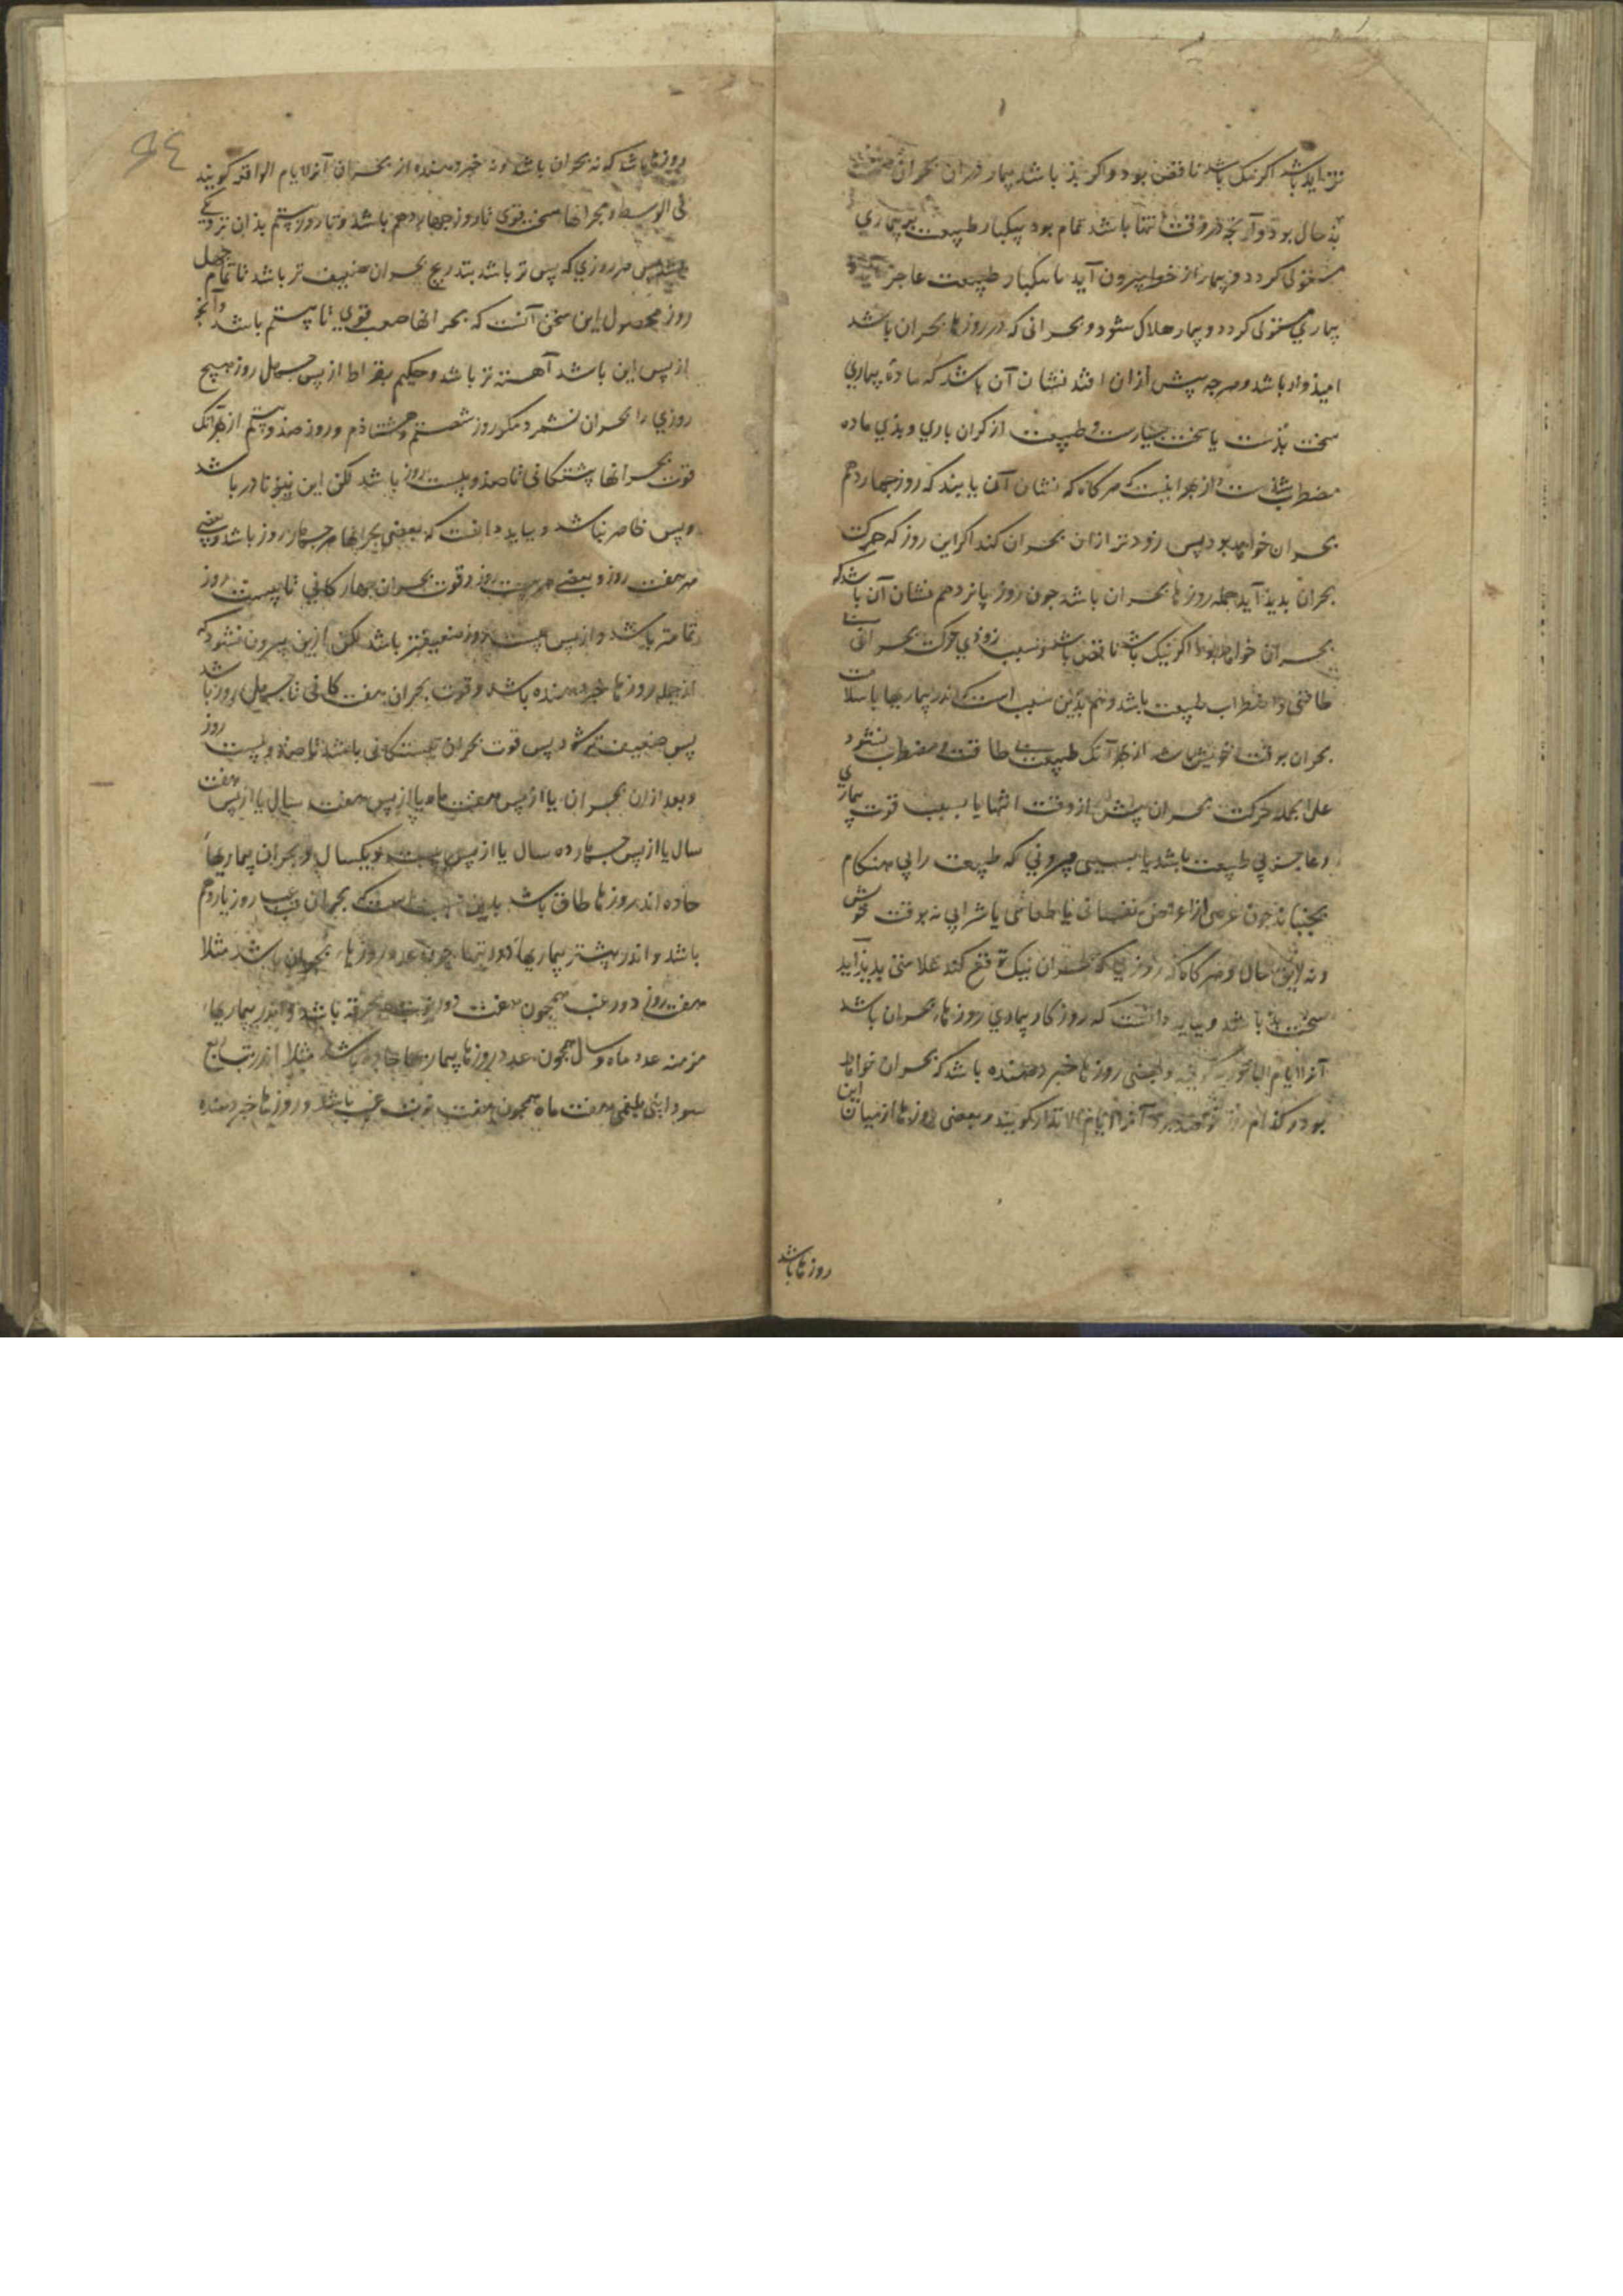 تزاید باشد اکر نیک باشد ناقص بود و اکر بذ باشد بیمار دران بحران
بذ حال بود و آنچه در وقت انتها باشد تمام بود بیکبار طبیعت بر بیماری
مستولی کردد و بیمار از خوف بیرون آید یا بیکبار طبیعت عاجز
بیماری مستولی کردد و بیمار هلاک شود و بحرانی که در روزها بحران باشد
امیذوار باشد و هرچه پیش ازان افتد نشان آن باشد که مادۀ بیماری
سخت بذست یا سخت بسیارست و طبیعت از کران باری و بذی ماده
مضطرب شذست و از بهر اینست که هرکاه که نشان آن یابند که روز چهاردهم
بحران خواهد بود پس زودتر ازان بحران کند اکر این روز که حرکت
بحران بدید آید جمله روزها بحران باشد چون روز یانزدهم نشان آن باشد که
بحران خواهد بود اکر نیک باشد ناقص باشد و سبب زودی حرکت بحرانی بی
طاقتی و اضطراب طبیعت باشد و هم بدین سبب است که اندر بیماریها با سلامت
بحران بوقت خویش باشد از بهر آنک طبیعت بی طاقت و مضطرب نشود
علی الجمله حرکت بحران پیش از وقت انتها یا بسبب قوت بیماری
و عاجزی طبیعت باشد یا بسببی بیرونی که طبیعت را بی هنکام
بجنباند چون عرضی از اعراض نفسانی یا طعامی یا شرابی نه بوقت خوش
و نه لایق حال و هرکاه که روزی که بحران نیک توقع کنند علامتی بدید آید
سخت بذ باشد و بباید دانست که روزکار بیماری روزهاء بحران باشد
آنرا ایام الباحوریه کویند و بعضی روزها خبر دهنده باشد که بحران خواهد
بود کذام روز آنرا ایام الانذار کویند و بعضی روزها از میان این
روزها باشد
روزها باشد که نه بحران باشد و نه خبر دهنده از بحران آنرا ایام الواقعه کویند
فی الوسط و بحرانها سخت قوی تا روز چهاردهم باشد و تا روز بیستم بذان نزدیک
باشد پس هر روزی که پس تر باشد بتدریج بحران ضعیف تر باشد تا تمام چهل
روز محصول این سخن آنست که بحرانها صعب قوی تا بیستم باشد و آنچه
از پس این باشد آهسته تر باشد و حکیم بقراط از پس چهل روز هیچ
روزی را بحران نشمرد مکر روز شصتم و هشتاذم و روز صذ و بیستم از بهر آنک
قوت بحرانها بیستکانی تا صذ و بیست روز باشد لکن این نیز نادر باشد
و پس ظاهر نباشد و بباید دانست که بعضی بحرانها هر چهار روز باشد و بعضی
هر هفت روز و بعضی هر بیست روز و قوت بحران چهارکانی تا بیست روز
تمامتر باشد و از پس بیست روز ضعیفتر باشد لکن ازین بیرون نشود که
از جمله روزها خبر دهنده باشد و قوت بحران هفت کانی تا چهل روز باشد
پس ضعیف تر شود پس قوت بحران بیستکانی باشد تا صذ و بیست روز
و بعد ازان بحران یا از پس هفت ماه یا از پس هفت سال یا از پس هفت
سال یا از پس چهارده سال یا از پس بیست و یکسال و بحران بیماریهاء
حاده اندر روزها طاق باشد بدین سبب است که بحران غب روز یازدهم
باشد و اندر بیشتر بیماریها دورتها چون عدد روزهاء بحران باشد مثلا
هفت روز دور غب همچون هفت دور تب محرقه باشد و اندر بیماریهاء
مزمنه عدد ماه و سال همچون عدد روزها بیماریها حاده باشد مثلا اندر تب ربع
سودایی بلغمی هفت ماه همچون هفت نوبت غب باشد و روزها خبر دهنده